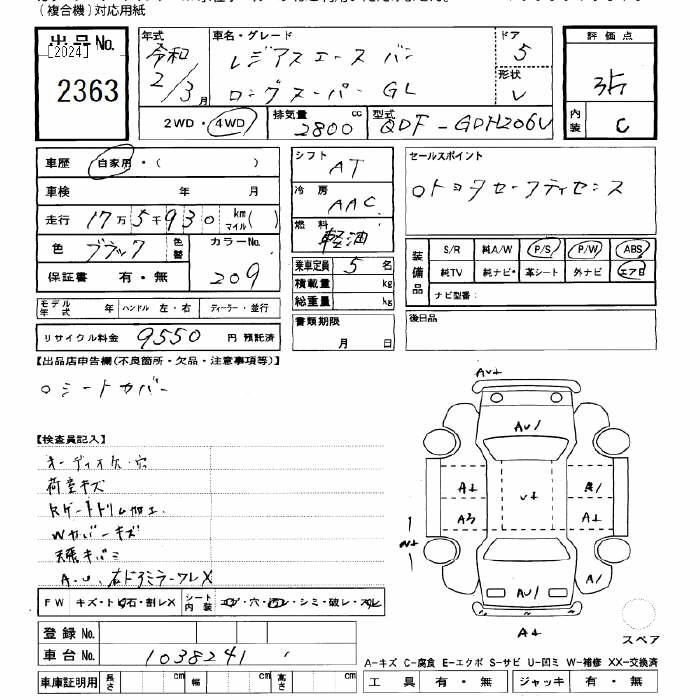 (複合機)対応用紙
出品No.
[2024]
2363
年式
令和
2/3月
車名・グレード
レジアスエース バン
ロングスーパーGL
ドア
5
形状
V
評価点
内装
C
2WD・4WD
排気量
2800cc
型式
QDF-GDH206V
車歴 自家用・( )
車検 年 月
走行 17万5千930 km マイル( )
色 ブラック 色替
カラーNo.
209
保証書 有・無
モデル年式 年 ハンドル 左・右 ディーラー・並行
リサイクル料金 9550 円 預託済
シフト AT
冷房 AAC
燃料 軽油
乗車定員 5名
積載量 kg
総重量 kg
書類期限
月 日
セールスポイント
○トヨタセーフティセンス
装備品
S/R 純A/W P/S P/W ABS
純TV 純ナビ・ 革シート 外ナビ エアB
ナビ型番:
後日品
【出品店申告欄(不良箇所・欠品・注意事項等)】
○シートカバー
【検査員記入】
オーディオ欠・穴
荷室キズ
Rゲートトリム加工
Wカバーキズ
天張キバミ
A.U、右ドアミラーワレX
FW キズ・トビ石・割レX シート内装 コゲ・穴・スレ・シミ・破レ・
登録No.
車台No. 1038241
車庫証明用 長さ cm 幅 cm 高さ cm
AU+
AU1
A+
A3
U+
A1
A+
A1
AU1
A+
スペア
A-キズ C-腐食 E-エクボ S-サビ U-凹ミ W-補修 XX-交換済
工具 有・無 ジャッキ 有・無